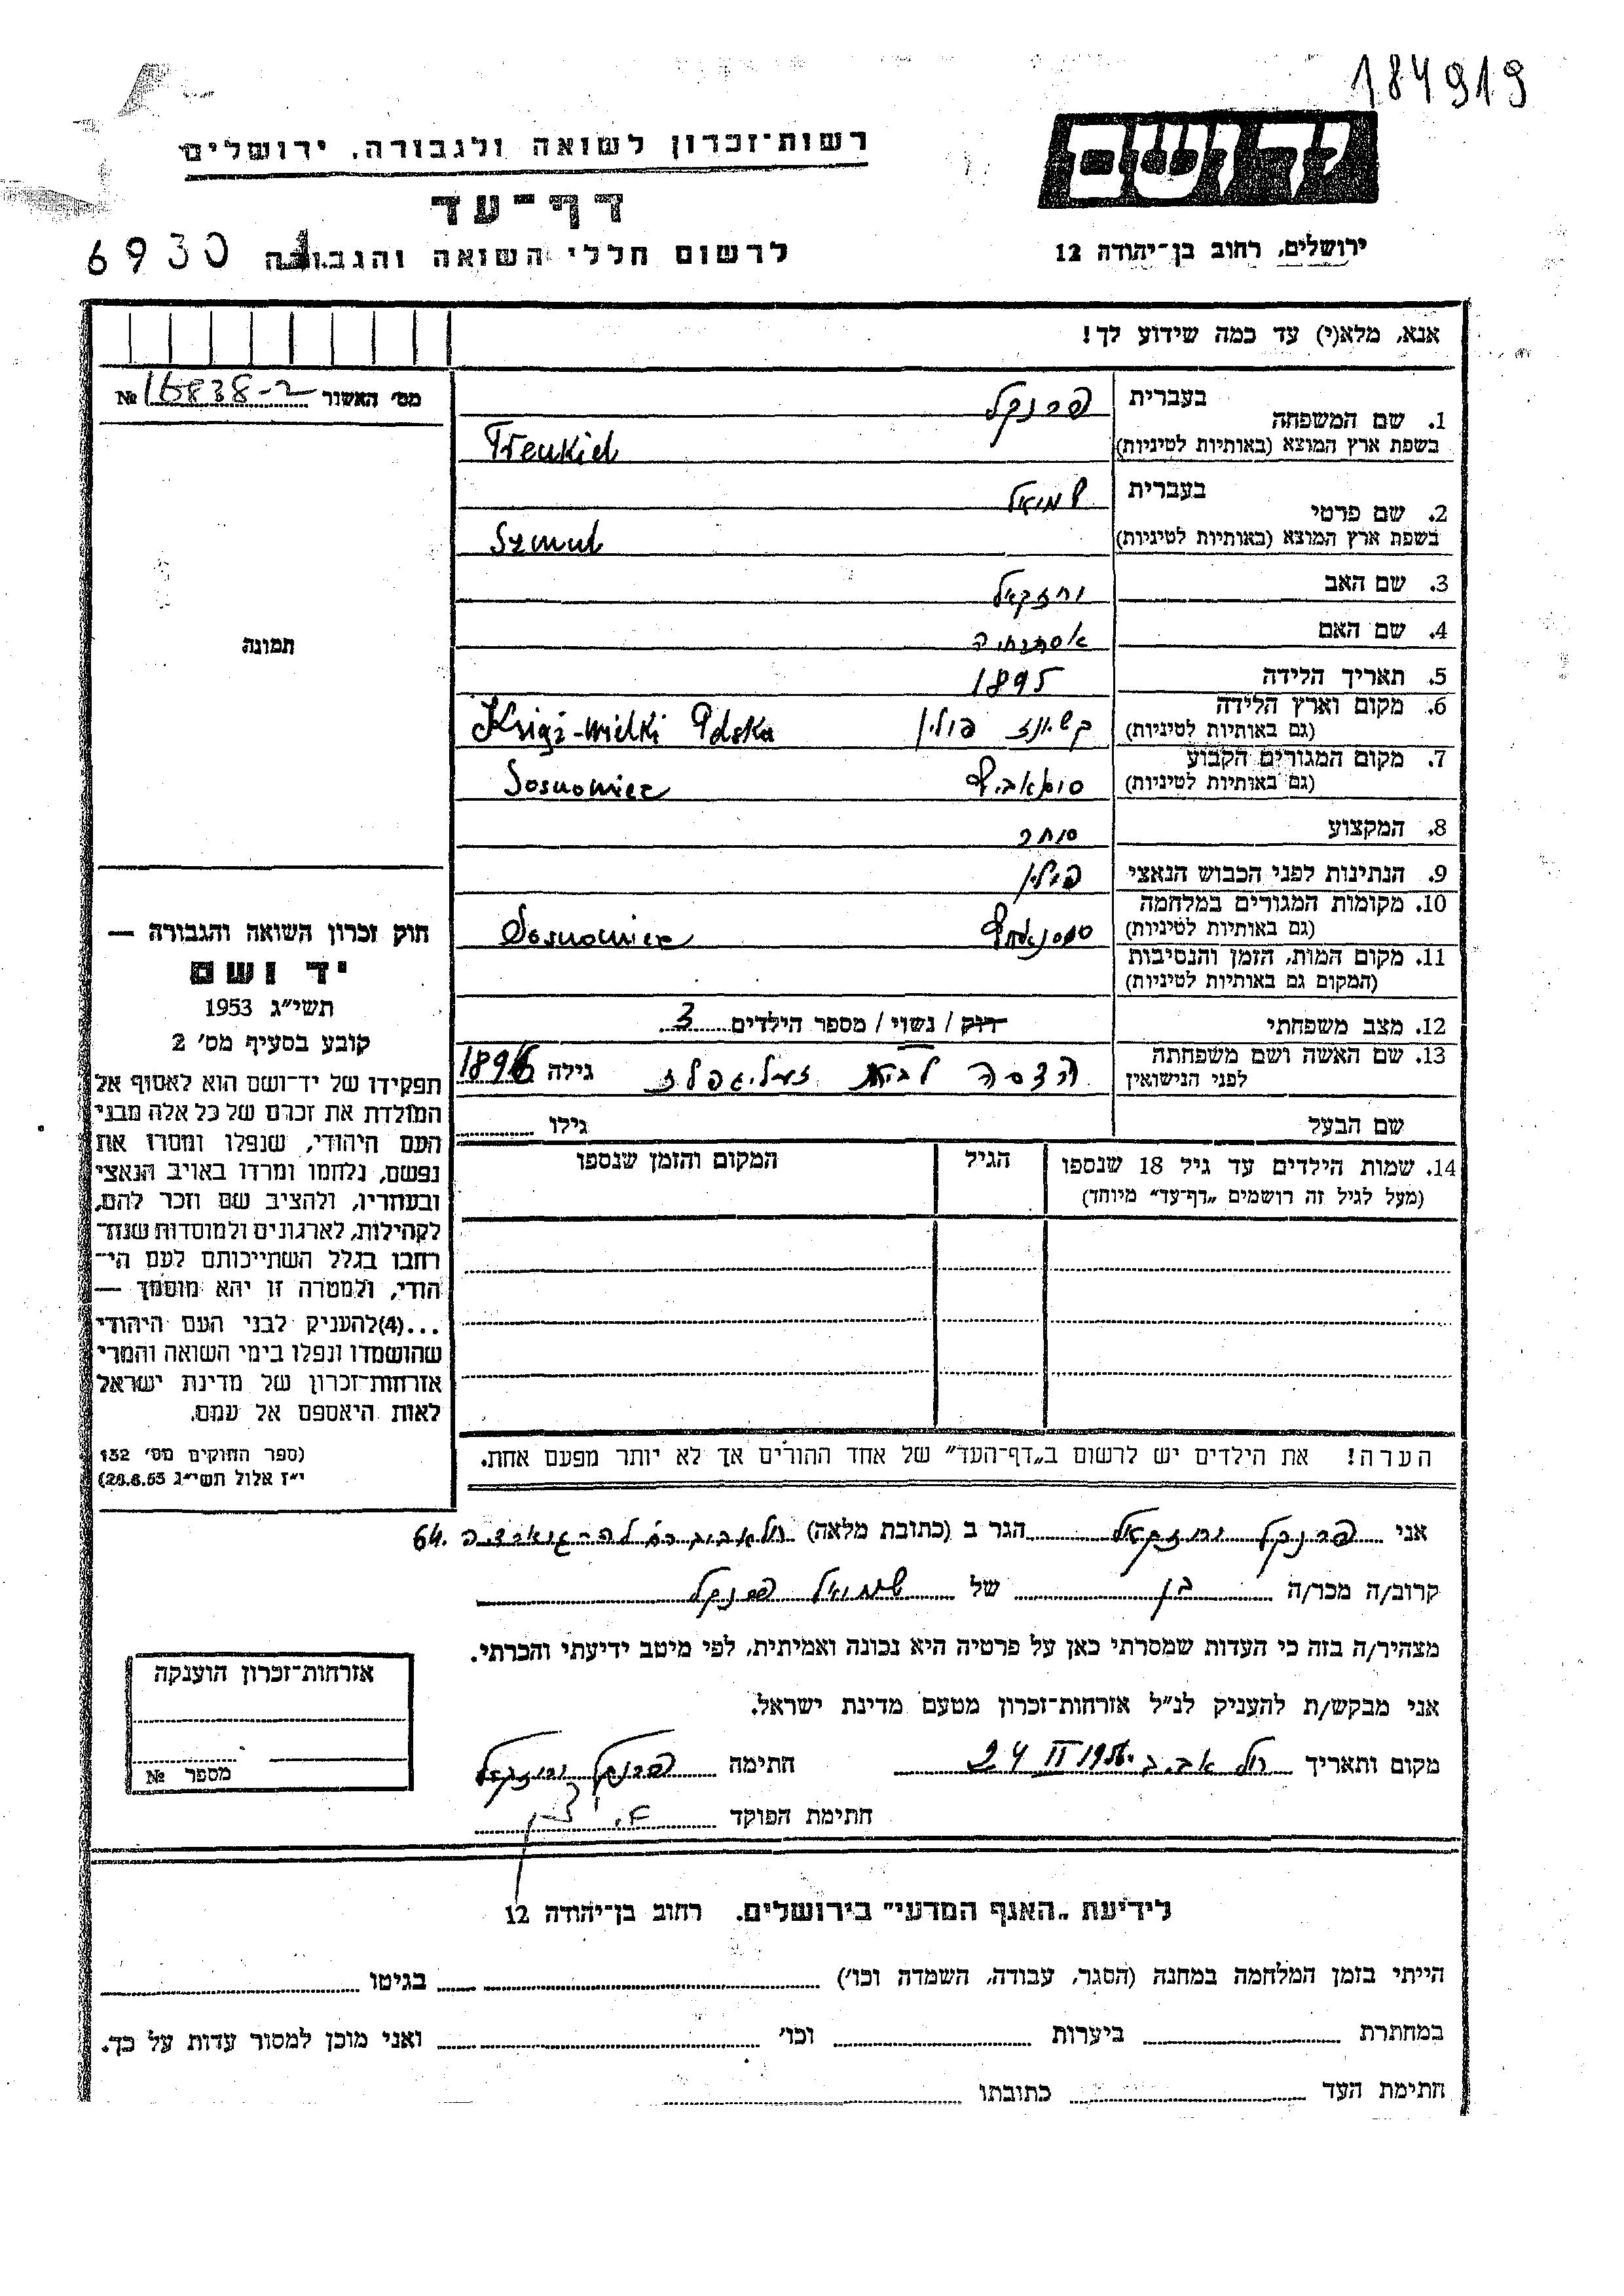 184919
רשות־זכרון לשואה ולגבורה, ירושלים
יד ושם
דף־עד
ירושלים, רחוב בן־יהודה 12
לרשום חללי השואה והגבורה
6930
אנא, מלא(י) עד כמה שידוע לך!
מס׳ האשור № 16838-2
1. שם המשפחה
בעברית פרנקל
בשפת ארץ המוצא (באותיות לטיניות) Frenkiel
2. שם פרטי
בעברית שמואל
בשפת ארץ המוצא (באותיות לטיניות) Szmul
3. שם האב יחזקאל
4. שם האם
5. תאריך הלידה 1895
6. מקום וארץ הלידה
(גם באותיות לטיניות) קשיונז פולין Książ-Wielki Polska
7. מקום המגורים הקבוע
(גם באותיות לטיניות) Sosnowiec
8. המקצוע סוחר
9. הנתינות לפני הכבוש הנאצי פולין
10. מקומות המגורים במלחמה
(גם באותיות לטיניות) Sosnowiec
11. מקום המות, הזמן והנסיבות
(המקום גם באותיות לטיניות)
12. מצב משפחתי רוק / נשוי / מספר הילדים 3
13. שם האשה ושם משפחתה
לפני הנישואין הדסה לבית גילה 1896
שם הבעל גילו
14. שמות הילדים עד גיל 18 שנספו
(מעל לגיל זה רושמים „דף־עד” מיוחד)
הגיל
המקום והזמן שנספו
הערה! את הילדים יש לרשום ב„דף־העד” של אחד ההורים אך לא יותר מפעם אחת.
תמונה
חוק זכרון השואה והגבורה —
יד ושם
תשי״ג 1953
קובע בסעיף מס׳ 2
תפקידו של יד־ושם הוא לאסוף אל
המולדת את זכרם של כל אלה מבני
העם היהודי, שנפלו ומסרו את
נפשם, נלחמו ומרדו באויב הנאצי
ובעוזריו, ולהציב שם וזכר להם,
לקהילות, לארגונים ולמוסדות שנח־
רבו בגלל השתייכותם לעם הי־
הודי, ולמטרה זו יהא מוסמך —
...(4)להעניק לבני העם היהודי
שהושמדו ונפלו בימי השואה והמרי
אזרחות־זכרון של מדינת ישראל
לאות היאספם אל עמם.
(ספר החוקים מס׳ 132
י״ז אלול תשי״ג 28.8.53)
אני פרנקל יחזקאל הגר ב (כתובת מלאה) תל אביב 64.
קרוב/ה מכר/ה בן של שמואל פרנקל
מצהיר/ה בזה כי העדות שמסרתי כאן על פרטיה היא נכונה ואמיתית, לפי מיטב ידיעתי והכרתי.
אני מבקש/ת להעניק לנ״ל אזרחות־זכרון מטעם מדינת ישראל.
מקום ותאריך תל אביב 24 II חתימה פרנקל יחזקאל
חתימת הפוקד
אזרחות־זכרון הוענקה
מספר №
לידיעת „האגף המדעי” בירושלים, רחוב בן־יהודה 12
הייתי בזמן המלחמה במחנה (הסגר, עבודה, השמדה וכו׳) בגיטו
במחתרת ביערות וכו׳ ואני מוכן למסור עדות על כך.
חתימת העד כתובתו